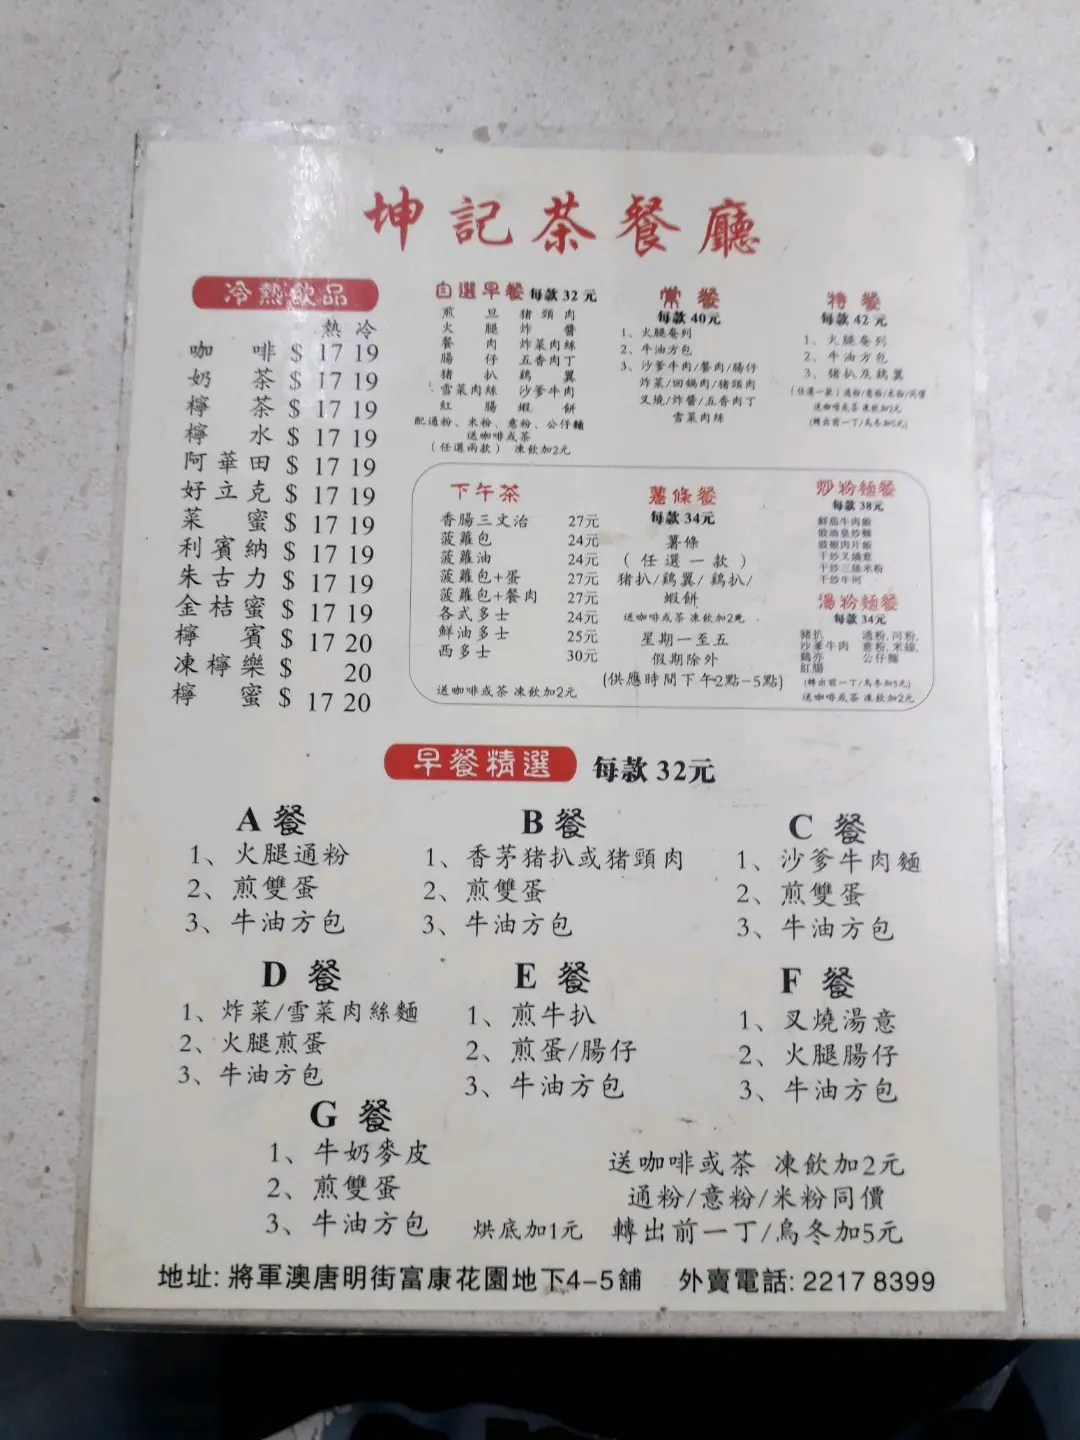 坤記茶餐廳
冷熱飲品
熱 冷
咖啡 $ 17 19
奶茶 $ 17 19
檸茶 $ 17 19
檸水 $ 17 19
阿華田 $ 17 19
好立克 $ 17 19
菜蜜 $ 17 19
利賓納 $ 17 19
朱古力 $ 17 19
金桔蜜 $ 17 19
檸賓 $ 17 20
凍檸樂 $ 20
檸蜜 $ 17 20
自選早餐 每款 32 元
煎旦 豬頸肉
火腿 炸醬
餐肉 炸菜肉絲
腸仔 五香肉丁
豬扒 鷄翼
雪菜肉絲 沙爹牛肉
紅腸 蝦餅
配通粉、米粉、意粉、公仔麵
送咖啡或茶
(任選兩款) 凍飲加2元
常餐
每款 40元
1、火腿奄列
2、牛油方包
3、沙爹牛肉/餐肉/腸仔
炸菜/回鍋肉/豬頸肉
叉燒/炸醬/五香肉丁
雪菜肉絲
特餐
每款 42 元
1、火腿奄列
2、牛油方包
3、豬扒及鷄翼
(任選一款)通粉/意粉/米粉/同價
送咖啡或茶 凍飲加2元
(轉出前一丁/烏冬加5元)
下午茶
香腸三文治 27元
菠蘿包 24元
菠蘿油 24元
菠蘿包+蛋 27元
菠蘿包+餐肉 27元
各式多士 24元
鮮油多士 25元
西多士 30元
送咖啡或茶 凍飲加2元
薯條餐
每款34元
薯條
(任選一款)
豬扒/鷄翼/鷄扒/
蝦餅
送咖啡或茶 凍飲加2元
星期一至五
假期除外
(供應時間下午2點-5點)
炒粉麵餐
每款 38元
鮮茄牛肉飯
豉油皇炒麵
豉椒肉片飯
干炒叉燒意
干炒三絲米粉
干炒牛河
湯粉麵餐
每款34元
豬扒 通粉,河粉,
沙爹牛肉 意粉,米線,
鷄亦 公仔麵
紅腸
(轉出前一丁/烏冬加5元)
送咖啡或茶 凍飲加2元
早餐精選 每款 32元
A 餐
1、火腿通粉
2、煎雙蛋
3、牛油方包
B 餐
1、香茅猪扒或猪頸肉
2、煎雙蛋
3、牛油方包
C 餐
1、沙爹牛肉麵
2、煎雙蛋
3、牛油方包
D 餐
1、炸菜/雪菜肉絲麵
2、火腿煎蛋
3、牛油方包
E 餐
1、煎牛扒
2、煎蛋/腸仔
3、牛油方包
F 餐
1、叉燒湯意
2、火腿腸仔
3、牛油方包
G 餐
1、牛奶麥皮
2、煎雙蛋
3、牛油方包
送咖啡或茶 凍飲加2元
通粉/意粉/米粉同價
烘底加1元 轉出前一丁/烏冬加5元
地址: 將軍澳唐明街富康花園地下4-5舖 外賣電話: 2217 8399